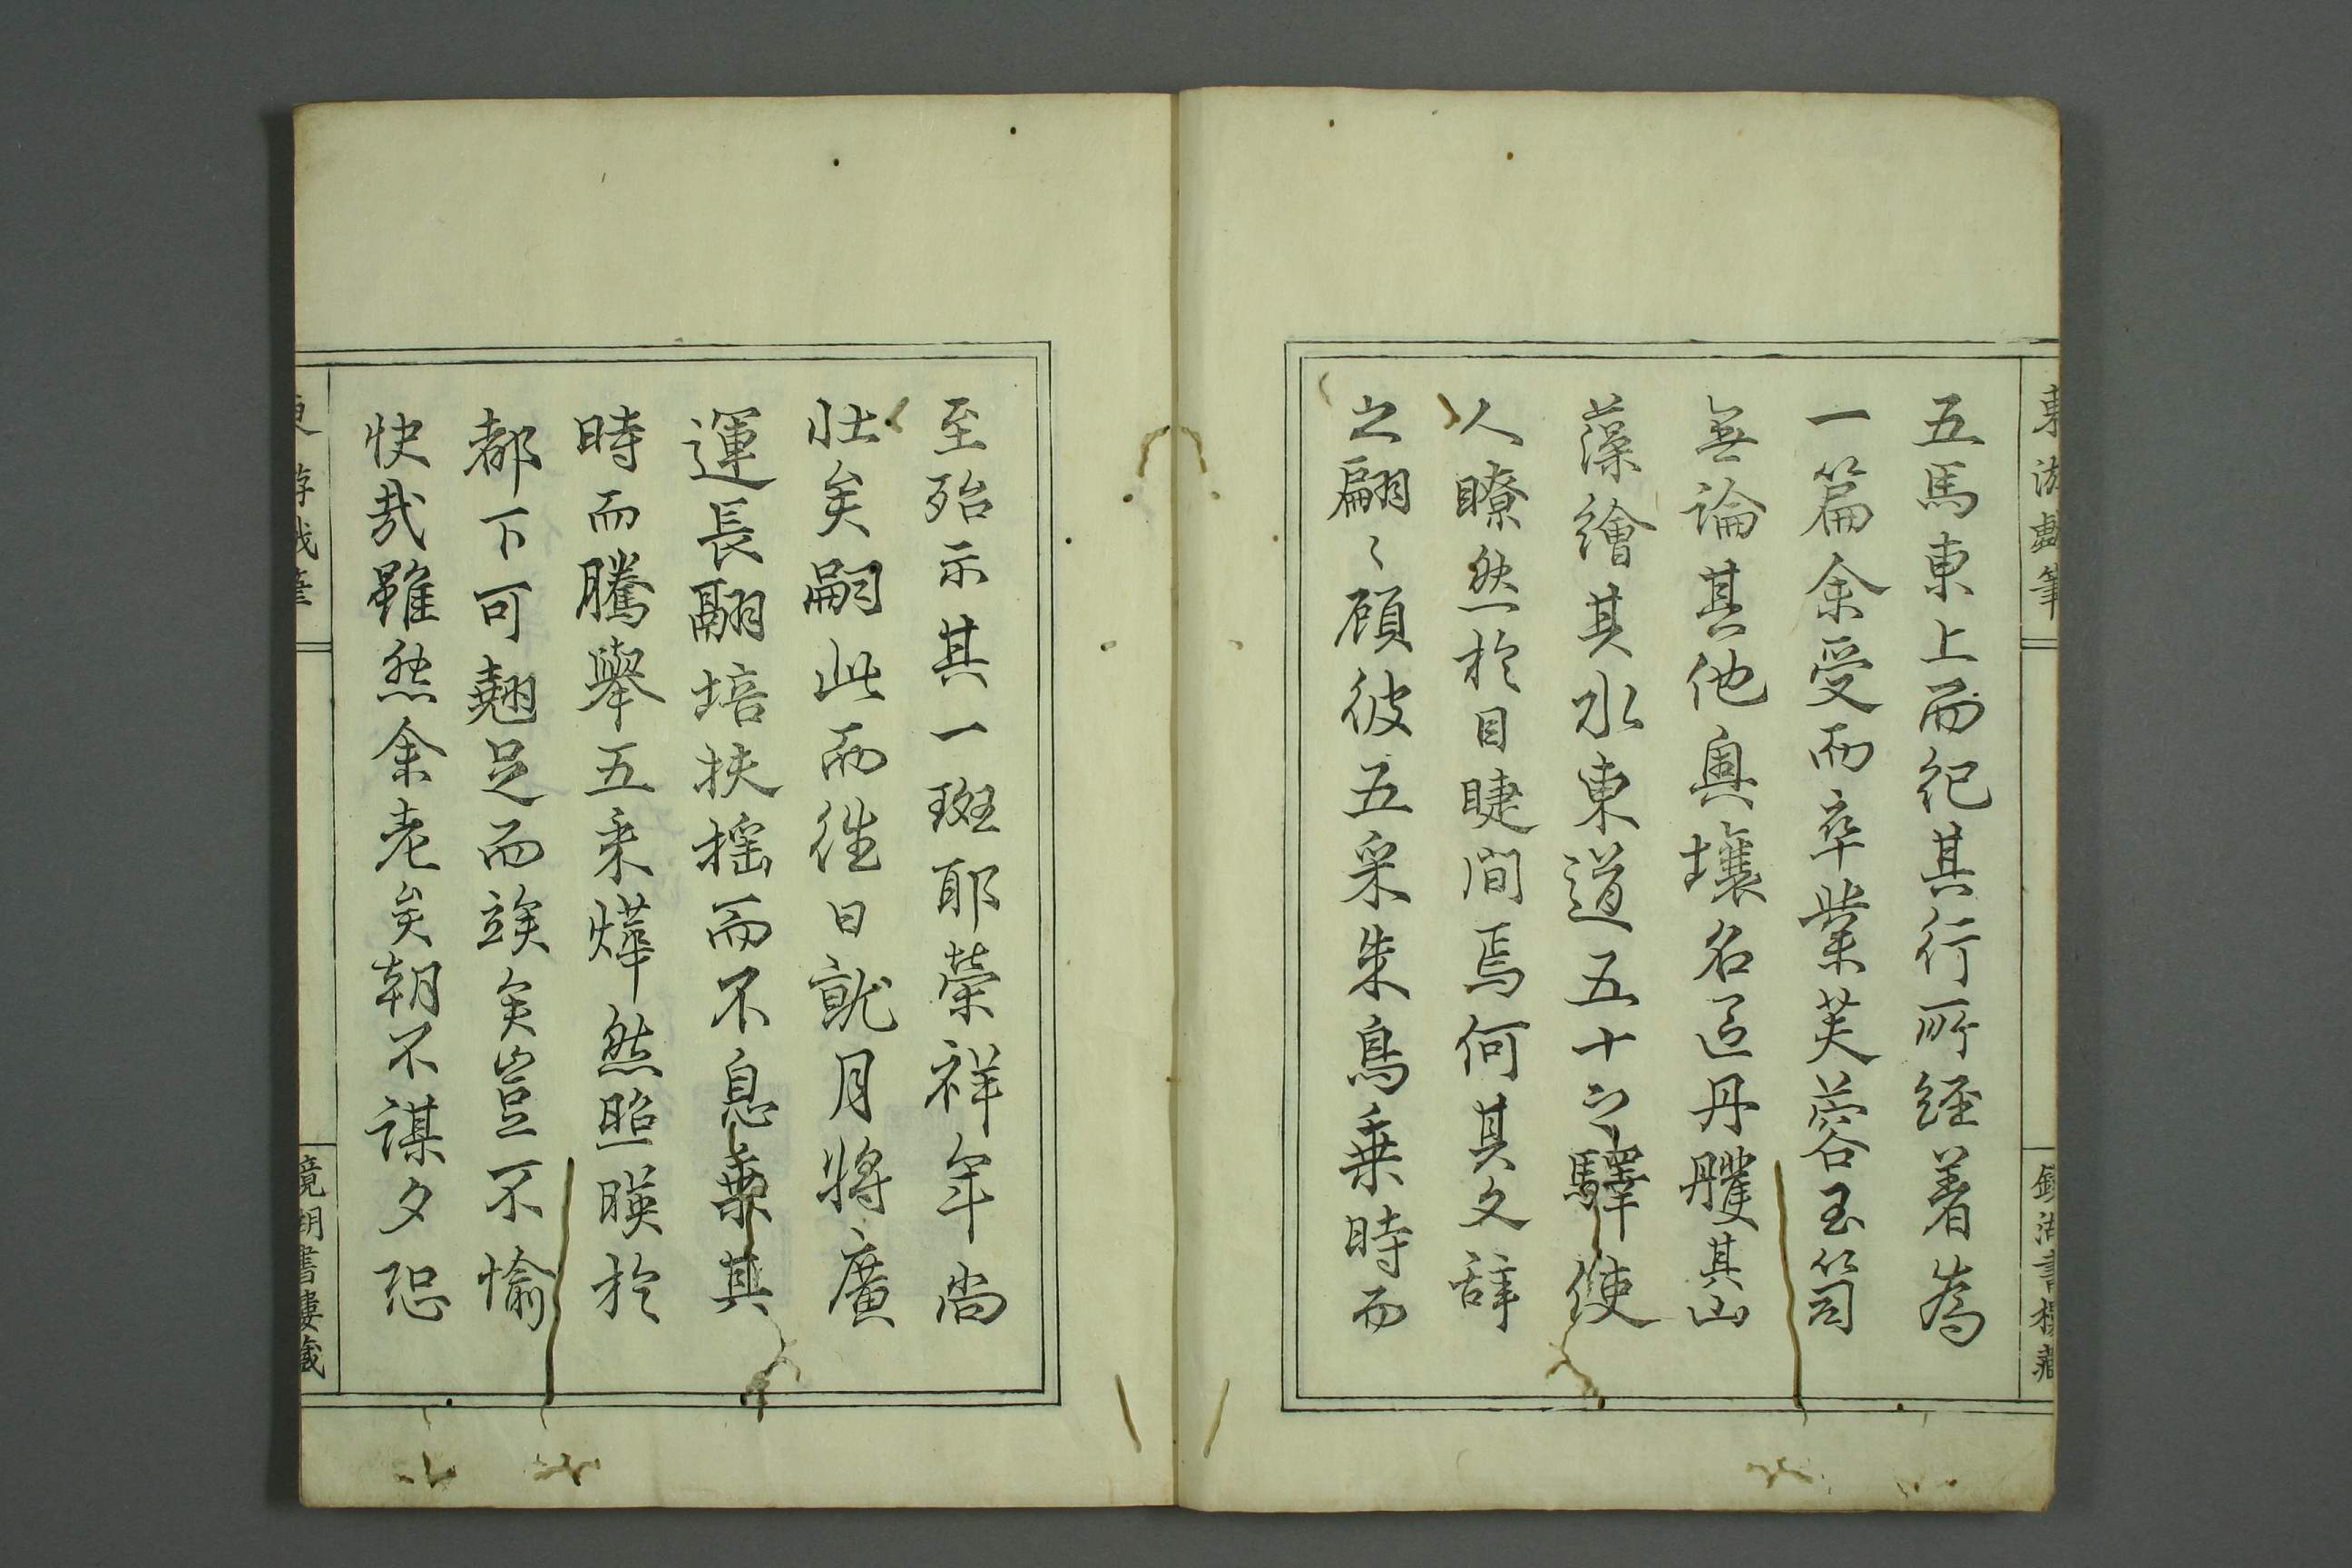 東游戲筆
五馬東上而紀其行所經著為
一篇余受而卒業芙蓉玉笥
無論其他奧壤名區丹雘其山
藻繪其水東道五十之驛使
人瞭然於目睫間焉何其文辞
之翩〻顧彼五采朱鳥乗時而
鏡湖書樓藏
至殆示其一斑耶榮祥年尚
壮矣嗣此而徃日就月將廣
運長翮培扶搖而不息乗其
時而騰舉五采燁然照暎於
都下可翹足而竢矣豈不愉
快哉雖然余老矣朝不謀夕恐
東游戲筆
鏡湖書樓藏